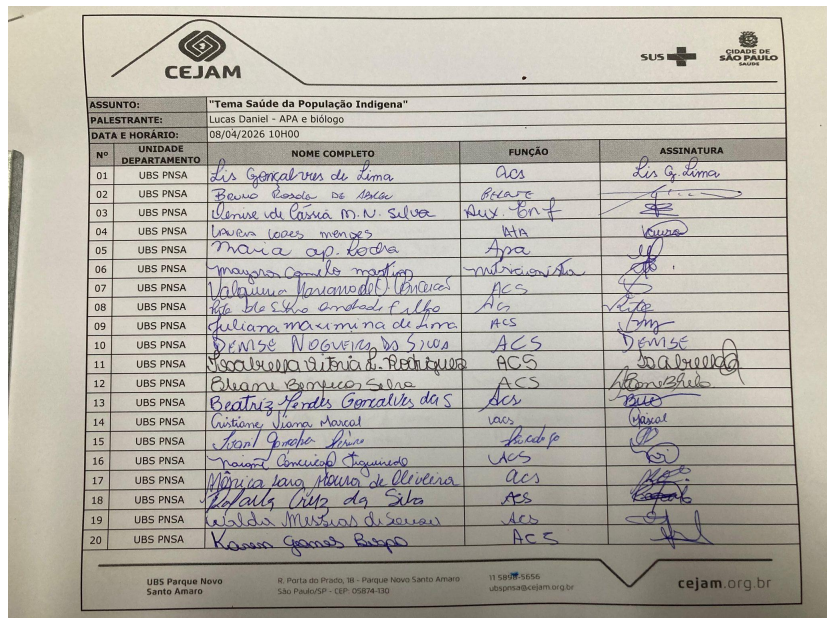 CEJAM
SUS
CIDADE DE SÃO PAULO SAÚDE
ASSUNTO: "Tema Saúde da População Indigena"
PALESTRANTE: Lucas Daniel - APA e biólogo
DATA E HORÁRIO: 08/04/2026 10H00
Nº UNIDADE DEPARTAMENTO NOME COMPLETO FUNÇÃO ASSINATURA
01 UBS PNSA Lis Gonçalves de Lima acs Lis G. Lima
02 UBS PNSA
03 UBS PNSA Denise de Cássia M. N. Silva Aux. Enf
04 UBS PNSA Laura Lopes mendes ATA Laura
05 UBS PNSA Maria ap. Rocha Apa
06 UBS PNSA mayara Camelo nutricionista
07 UBS PNSA Valquiria Mariano de ACS
08 UBS PNSA da Silva andrade Filho
09 UBS PNSA Juliana maximina de Lima ACS
10 UBS PNSA DENISE NOGUEIRA DA SILVA ACS DENISE
11 UBS PNSA Isabrella Vitória L. Rodrigues ACS Isabrella
12 UBS PNSA Eliane Silva ACS
13 UBS PNSA Beatriz Mendes Goncalves da S Acs
14 UBS PNSA Cristiane Viana Marcal acs Marcal
15 UBS PNSA
16 UBS PNSA Conceicao Figueiredo ACS
17 UBS PNSA Mônica Lara Moura de Oliveira acs
18 UBS PNSA Rafaela Cruz da Silva Acs
19 UBS PNSA Messias de Souza Acs
20 UBS PNSA Karen Gomes Bispo ACS
UBS Parque Novo Santo Amaro
R. Porta do Prado, 18 - Parque Novo Santo Amaro
São Paulo/SP - CEP: 05874-130
ubspnsa@cejam.org.br
cejam.org.br